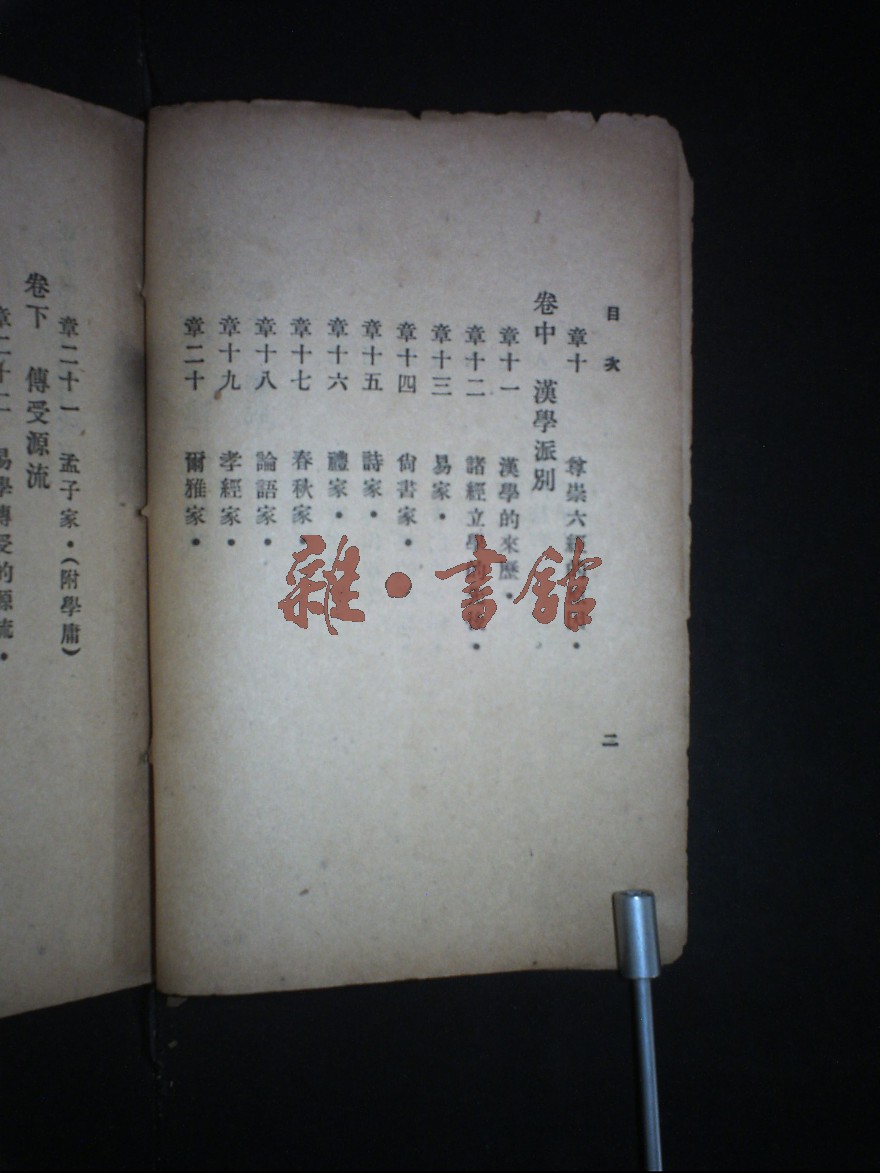 目次
二
章十 尊崇六經
卷中 漢學派別
章十一 漢學的來歷・
章十二 諸經立學的
章十三 易家・
章十四 尙書家・
章十五 詩家・
章十六 禮家・
章十七 春秋家・
章十八 論語家・
章十九 孝經家・
章二十 爾雅家・
章二十一 孟子家・(附學庸)
卷下 傳受源流
章二十二 易學傳受的源流・
雜・書館